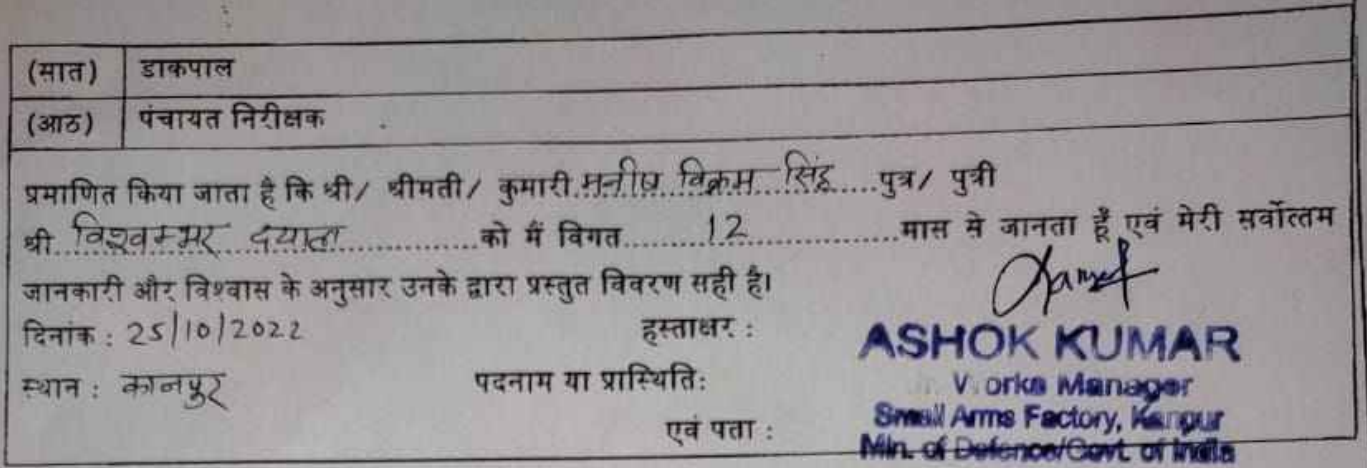 (सात) डाकपाल
(आठ) पंचायत निरीक्षक
प्रमाणित किया जाता है कि श्री/ श्रीमती/ कुमारी मनीष विक्रम सिंह.....पुत्र/ पुत्री
श्री विश्वम्भर दयाल..............को मैं विगत..........12..............मास से जानता हूँ एवं मेरी सर्वोत्तम
जानकारी और विश्वास के अनुसार उनके द्वारा प्रस्तुत विवरण सही है।
दिनांक : 25/10/2022 हस्ताक्षर :
ASHOK KUMAR
स्थान : कानपुर पदनाम या प्रास्थिति: Works Manager
Small Arms Factory, Kanpur
एवं पता :
Min. of Defence/Govt. of India